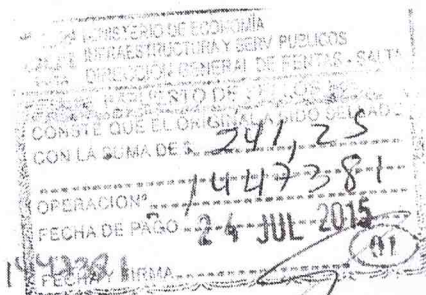 MINISTERIO DE ECONOMÍA
INFRAESTRUCTURA Y SERV PUBLICOS
DIRECCIÓN GENERAL DE RENTAS - SALTA
IMPUESTO DE SELLOS
CONSTE QUE EL ORIGINAL HA SIDO SELLADO
CON LA SUMA DE $ 241,25
OPERACION Nº 1447381
FECHA DE PAGO 24 JUL 2015
01
1447381
FECHA FIRMA